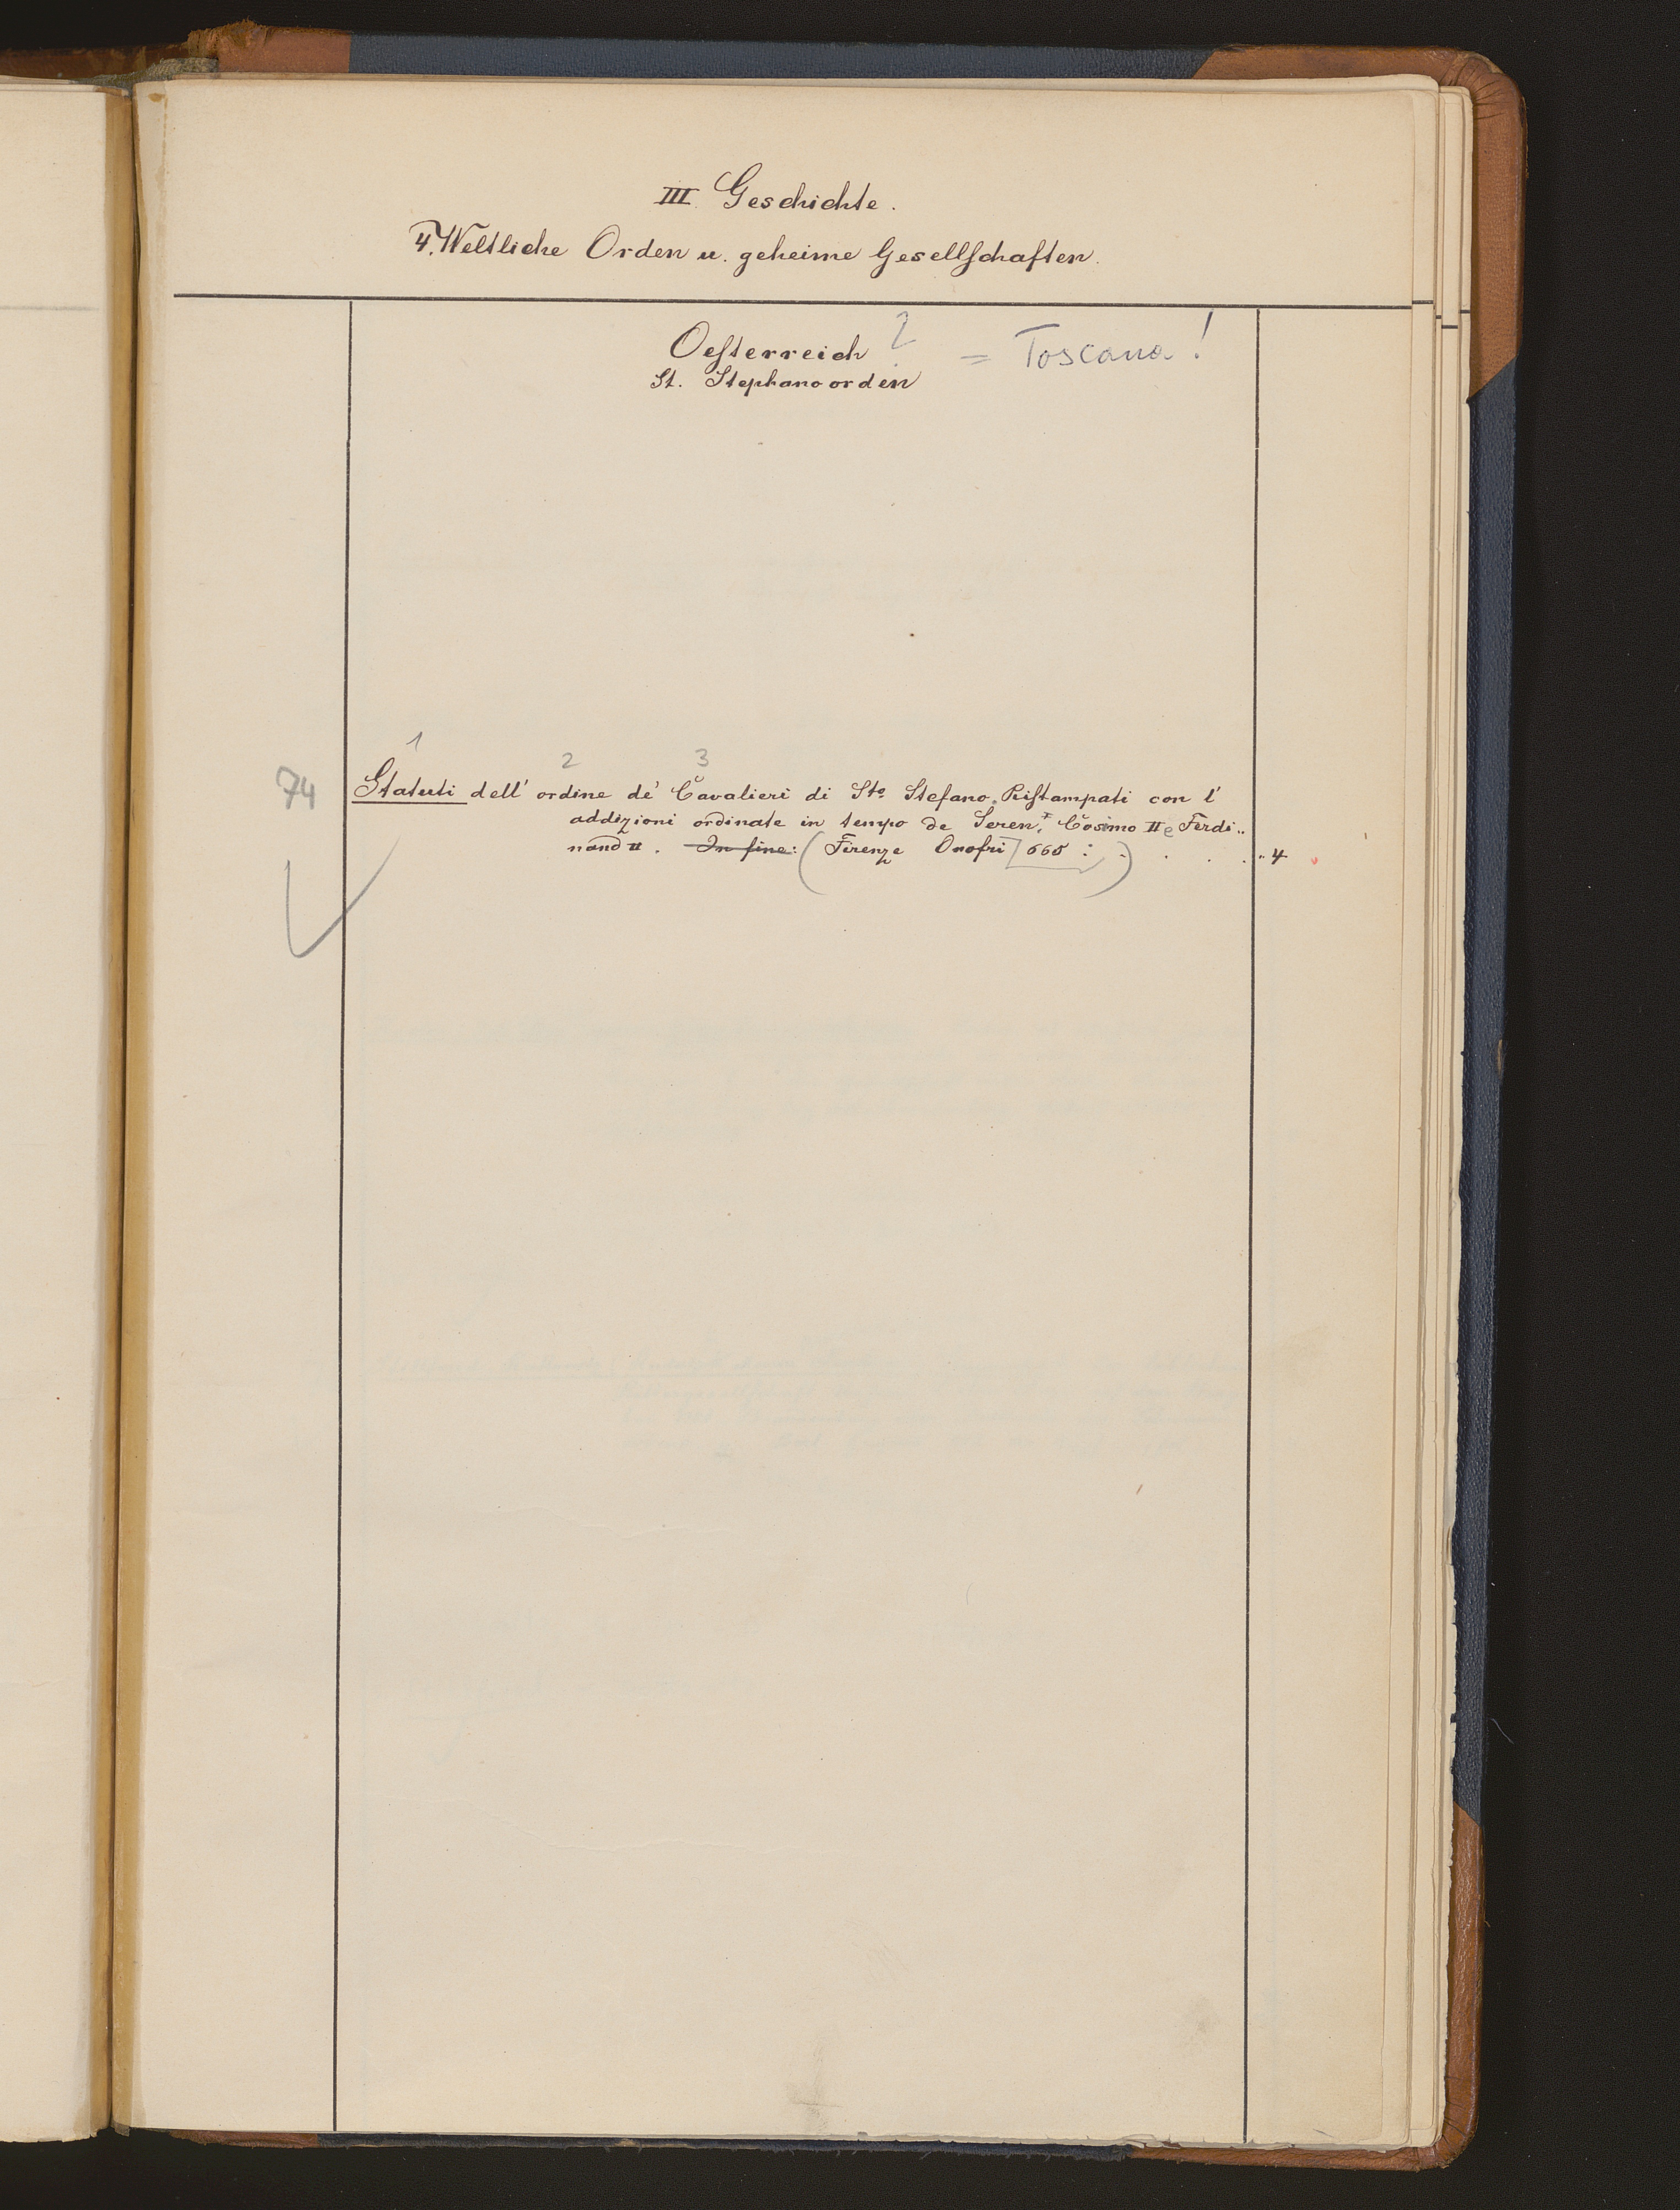 III. Geschichte.
4. Weltliche Orden u. geheime Gesellschaften.
Oesterreich ? = Toscana!
St. Stephano orden
1 2 3
74 Statuti dell' ordine de' Cavalieri di Sto Stefano. Ristampati con l'
addizioni ordinate in tempo de Seren. Cosimo II e Ferdi„
nand II. In fine: (Firenze Onofri 665 : . ) . . . „4